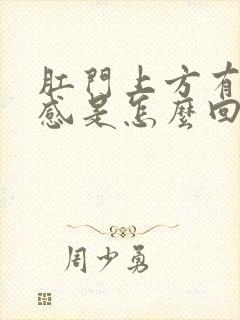 肛門上方有
感是怎麼回
周少勇